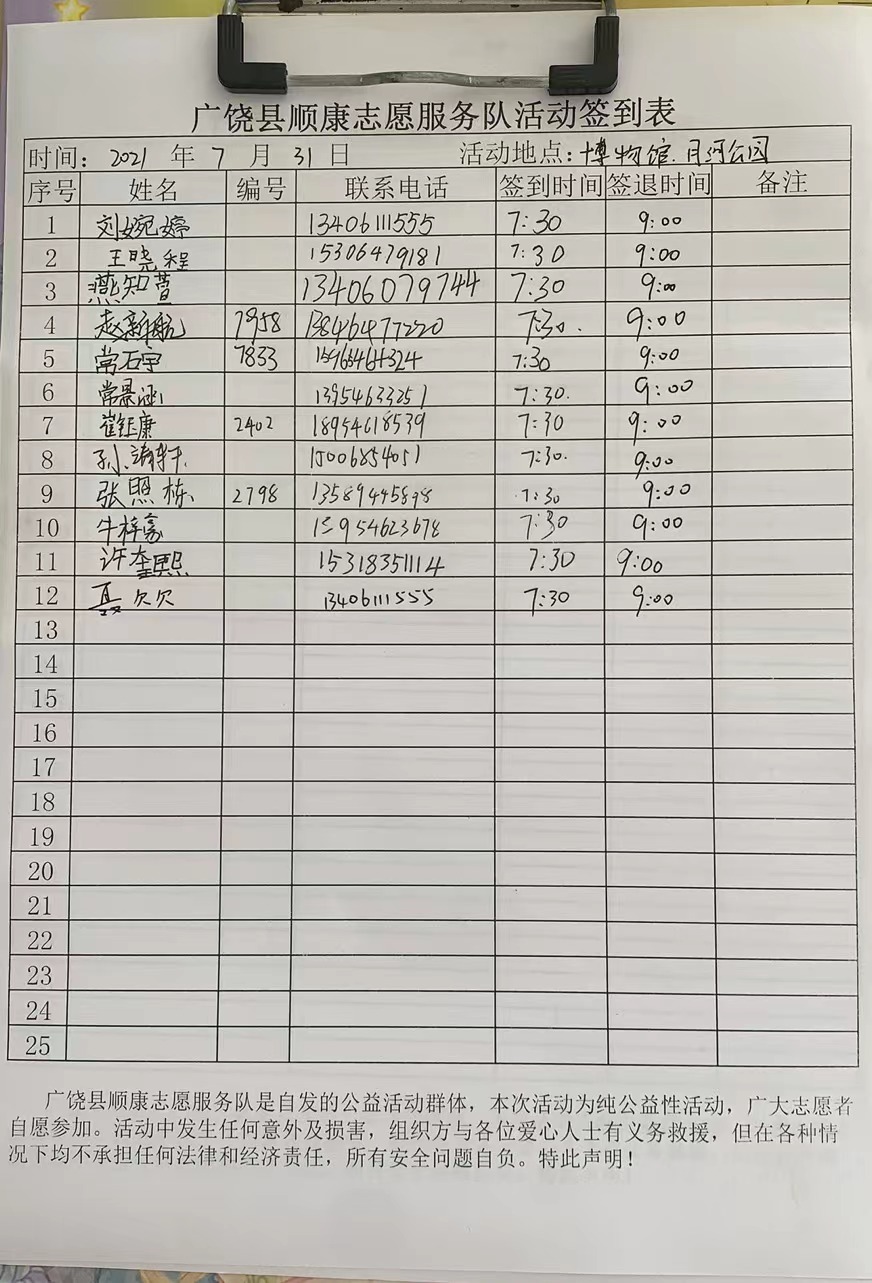 广饶县顺康志愿服务队活动签到表
时间: 2021 年 7 月 31 日 活动地点:博物馆.月河公园
序号 姓名 编号 联系电话 签到时间 签退时间 备注
1 刘婉婷 13406111555 7:30 9:00
2 王晓程 15306479181 7:30 9:00
3 燕知萱 13406079744 7:30 9:00
4 赵新航 7958 13846477220 7:30. 9:00
5 常石宇 7833 7:30 9:00
6 常景涵 13954633251 7:30. 9:00
7 崔钰康 2402 18954618539 7:30 9:00
8 孙 15006854051 7:30. 9:00
9 张照栋 2798 13589445898 7:30 9:00
10 牛梓豪 15954623678 7:30 9:00
11 许奎熙 15318351114 7:30 9:00
12 聂欠欠 13406111555 7:30 9:00
13
14
15
16
17
18
19
20
21
22
23
24
25
广饶县顺康志愿服务队是自发的公益活动群体，本次活动为纯公益性活动，广大志愿者
自愿参加。活动中发生任何意外及损害，组织方与各位爱心人士有义务救援，但在各种情
况下均不承担任何法律和经济责任，所有安全问题自负。特此声明！